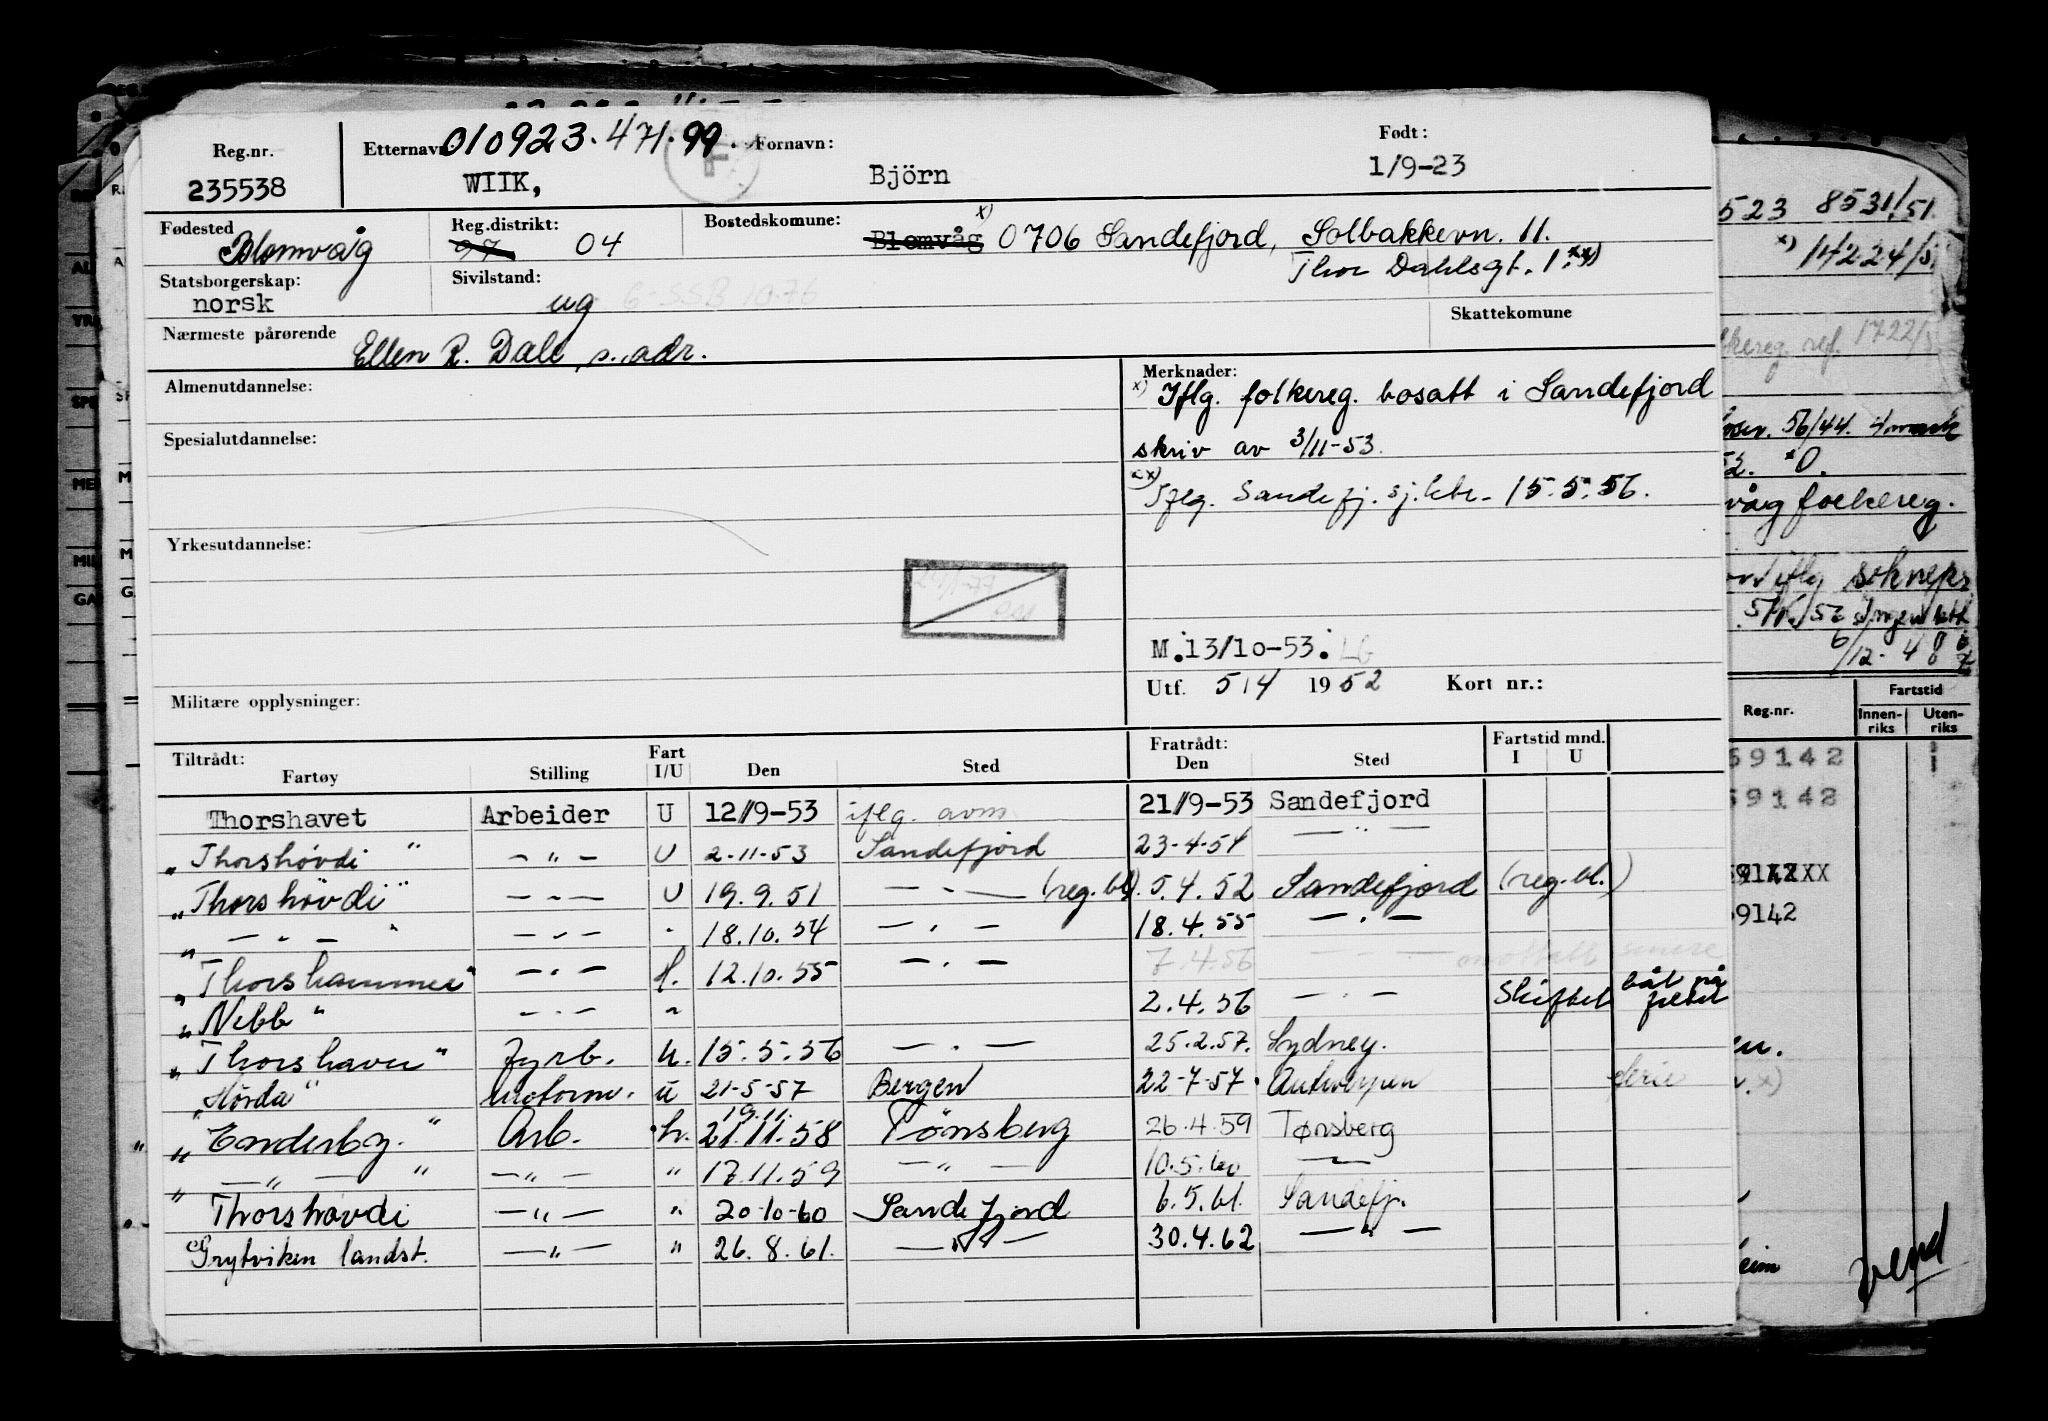 Reg.nr. Etternavn 010923.471.99. Fornavn: Født:
235538 WIIK, Björn 1/9-23
Fødested Blomvåg Reg.distrikt: 97 04 Bostedskomune: Blomvåg x) 0706 Sandefjord, Solbakkevn. 11.
Thor Dahlsgt. 1. xx)
Statsborgerskap: norsk Sivilstand: ug 6-SSB 10.76
Nærmeste pårørende Ellen R. Dale, s. adr. Skattekomune
Almenutdannelse:
Spesialutdannelse:
Yrkesutdannelse:
Militære opplysninger:
Merknader:
x) Iflg. folkereg. bosatt i Sandefjord
skriv av 3/11-53.
xx) Iflg. Sandefj. sj. 15.5.56.
M.13/10-53. LG
Utf. 5/4 1952 Kort nr.:
Tiltrådt: Fratrådt: Fartstid mnd.
Fartøy Stilling Fart I/U Den Sted Den Sted I U
Thorshavet Arbeider U 12/9-53 iflg. avm 21/9-53 Sandefjord
"Thorshövdi" — " — U 2-11-53 Sandefjord 23-4-54 — " —
"Thorshövdi" — " — U 19.9.51 — " — (reg.bl). 5.4.52 Sandefjord (reg.bl.)
" — " — " — " — " 18.10.54 — " — 18.4.55 — " —
"Thorshammer" — " — 12.10.55 — " — 7.4.56 — " —
"Nebb" — " — " 2.4.56 — " — Skiftet båt på feltet
"Thorshavn" Fyrb. u. 15.5.56 — " — 25.2.57. Sydney.
"Hörda" Motorm. u 21-5-57 Bergen 22-7-57. Antwerpen ferie
19.11.
"Enderby." Arb. h. 21.11.58 Tønsberg 26.4.59 Tørsberg
" — " — " — " — " 17.11.59 — " — 10.5.60 — " —
Thorshövdi — " — " 20-10-60 Sandefjord 6.5.61. Sandefj.
Grytviken landst. — " — " 26.8.61. — " — 30.4.62 — " —
523 8531/51.
x) 14224/5
reg. ref. 1722/5
56/44.
52. x0.
våg folkereg.
iflg
6/12-48
Reg.nr. Fartstid
Innenriks Utenriks
59142
59142
9142XX
9142
en.
x)
eim
vend